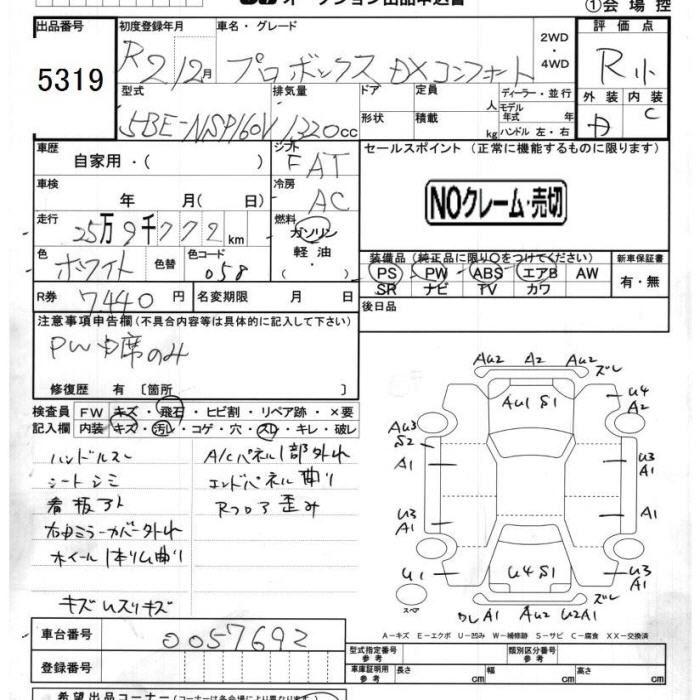 オークション出品申込書
①会場控
出品番号
5319
初度登録年月
R2 12月
車名・グレード
プロボックス DXコンフォート
2WD
・
4WD
評価点
R小
外装 内装
D C
型式
5BE-NSP160V
排気量
1320cc
ドア
形状
定員
人
積載
kg
ディーラー・並行
モデル
年式 年
ハンドル 左・右
車歴
自家用・( )
シフト
FAT
セールスポイント (正常に機能するものに限ります)
NOクレーム・売切
車検
年 月( 日)
冷房
AC
走行
25万9千772km
燃料
ガソリン
軽油・
( )
色
ホワイト
色替
色コード
058
装備品 (純正品に限り○をつけてください)
PS PW ABS エアB AW
SR ナビ TV カワ
新車保証書
有・無
R券
7,440円
名変期限 月 日
後日品
注意事項申告欄 (不具合内容等は具体的に記入して下さい)
PW 席のみ
修復歴 有 〔箇所 〕
検査員 FW キズ・飛石・ヒビ割・リペア跡・×要
記入欄 内装 キズ・汚レ・コゲ・穴・スレ・キレ・破レ
ハンドルスレ
シートシミ
看板アト
右ドアミラーカバー外れ
ホイール1本リム曲り
キズ ハズリキズ
A/Cパネル1部外れ
エンドパネル曲り
Rフロア歪み
AU2 A2 AU2 ズレ
AU1 S1
U4
A2
AU3
S2
A1
U3
A1
U3
A1
A1
U1
U4 S1
U3
A1
スペア
ワレA1 AU2 U2A1
ズレ
A-キズ E-エクボ U-凹み W-補修跡 S-サビ C-腐食 XX-交換済
車台番号
0057692
登録番号
型式指定番号
参考
類別区分番号
参考
車庫証明用
参考
長さ cm
幅 cm
高さ cm
希望出品コーナー